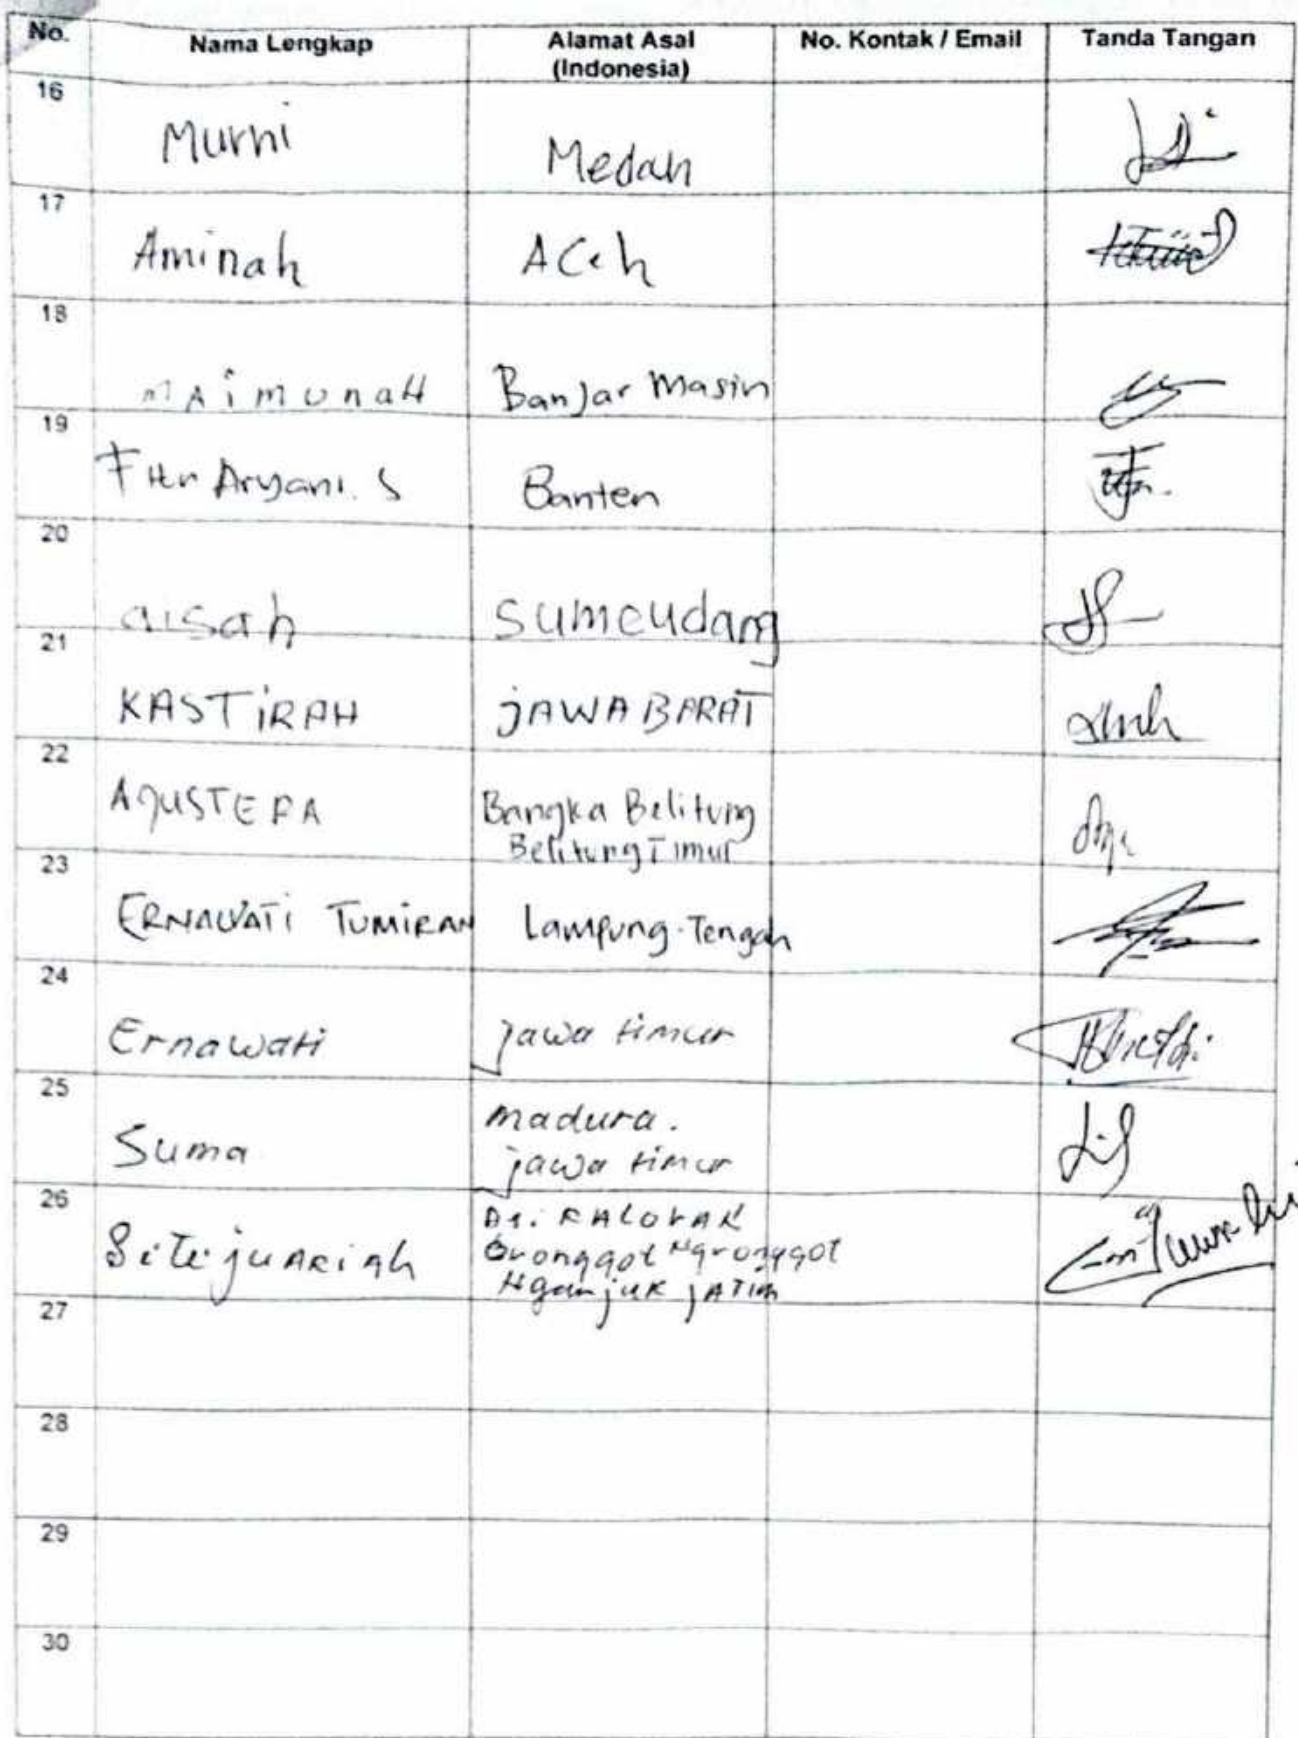 No. Nama Lengkap Alamat Asal (Indonesia) No. Kontak / Email Tanda Tangan
16 Murni Medan
17 Aminah ACeh
18 mAimunaH Banjar Masin
19 Fitr Aryani. S Banten
20 aisah Sumeudang
21 KASTiRAH jAWA BARAT
22 AgUSTEPA Bangka Belitung
Belitung Timur
23 ERNAWATi TUMiRAN Lampung-Tengah
24 Ernawati jawa timur
25 Suma madura.
jawa timur
26 Siti juARiah
Ngronggot
Nganjuk jATim
27
28
29
30